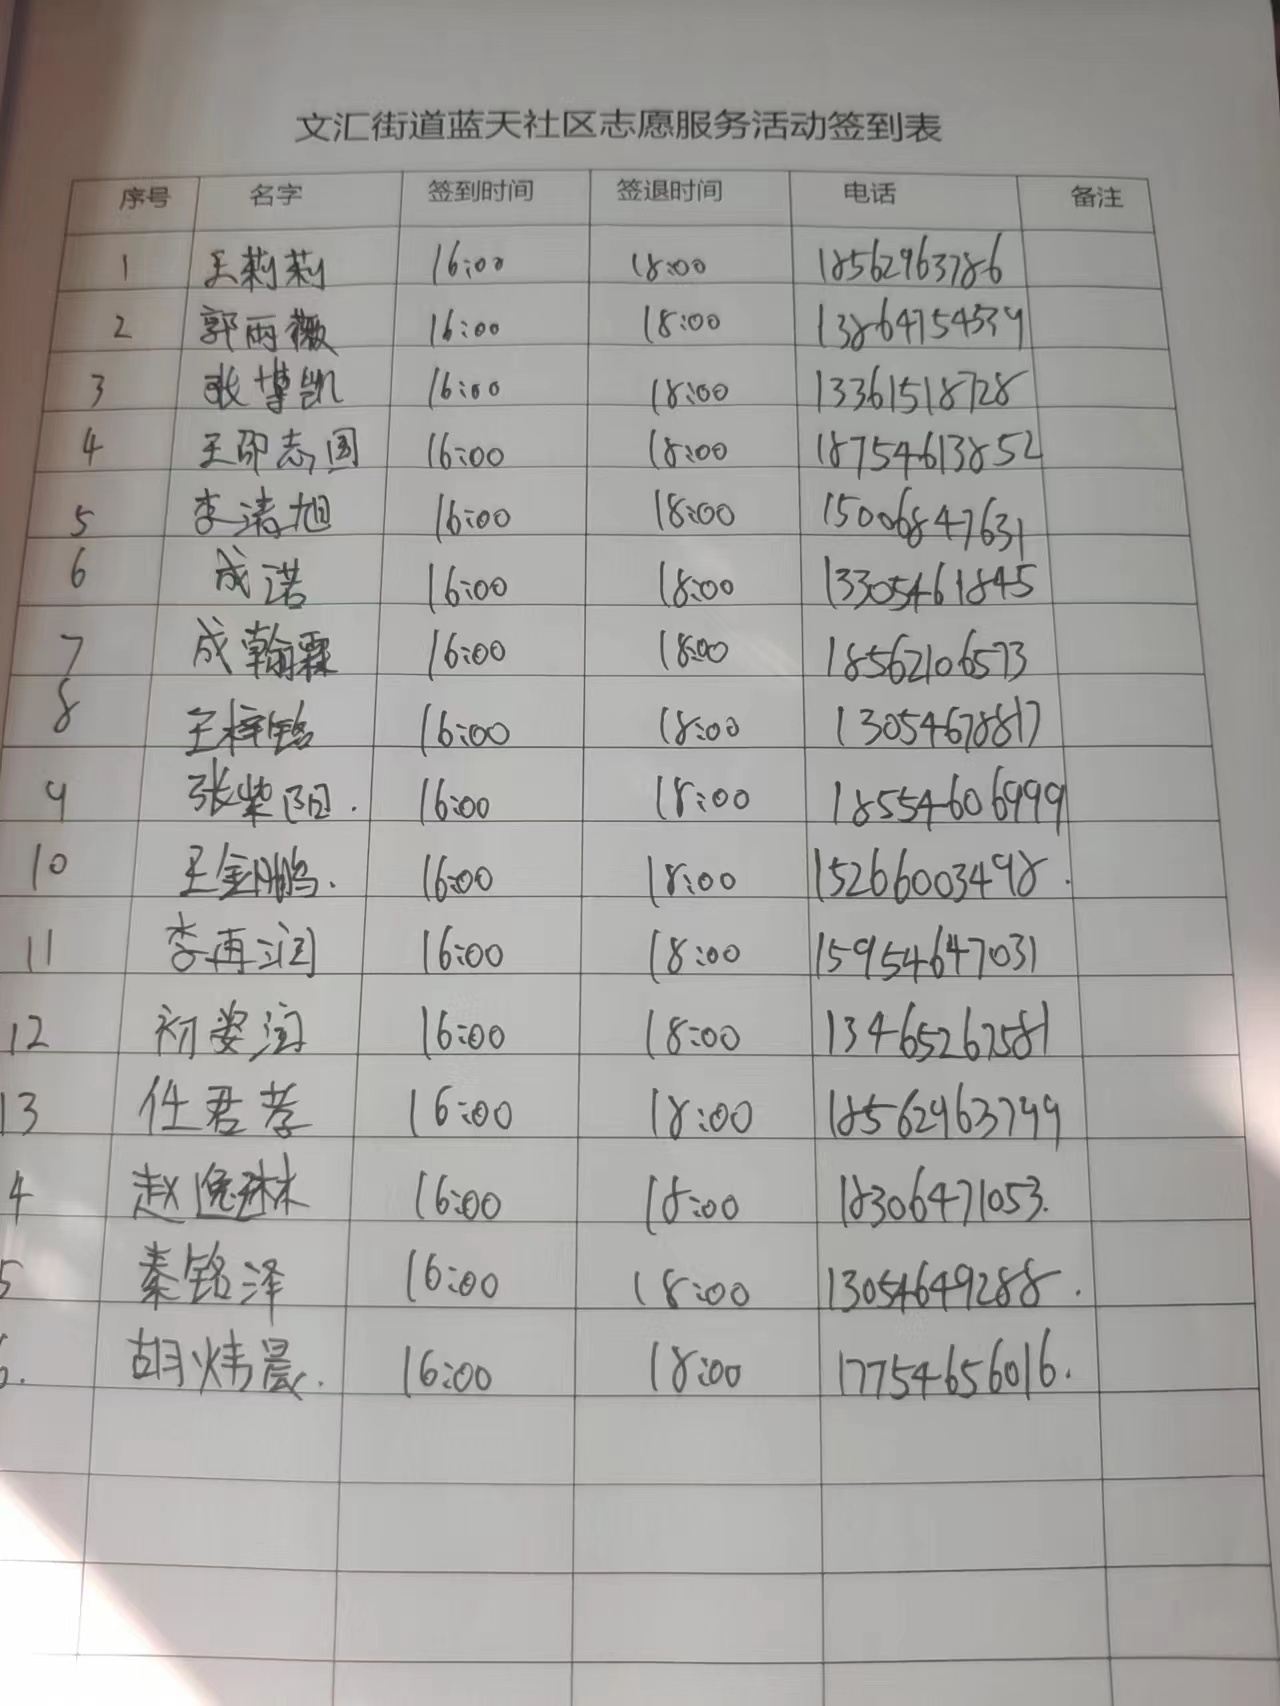 文汇街道蓝天社区志愿服务活动签到表
序号 名字 签到时间 签退时间 电话 备注
1 王莉莉 16:00 18:00 18562963786
2 郭雨薇 16:00 18:00 13864754539
3 张博凯 16:00 18:00 13361518728
4 王邵志国 16:00 18:00 18754613852
5 李清旭 16:00 18:00 15006847631
6 成诺 16:00 18:00 13305461845
7 成翰霖 16:00 18:00 18562106573
8 王梓铭 16:00 18:00 13054678817
9 张紫阳. 16:00 18:00 18554606999
10 王金鹏. 16:00 18:00 15266003498.
11 李再润 16:00 18:00 15954647031
12 初姿润 16:00 18:00 13465267581
13 任君孝 16:00 18:00 18562963799
4 赵逸琳 16:00 18:00 18306471053.
5 秦铭泽 16:00 18:00 13054649288.
6. 胡炜晨. 16:00 18:00 17754656016.